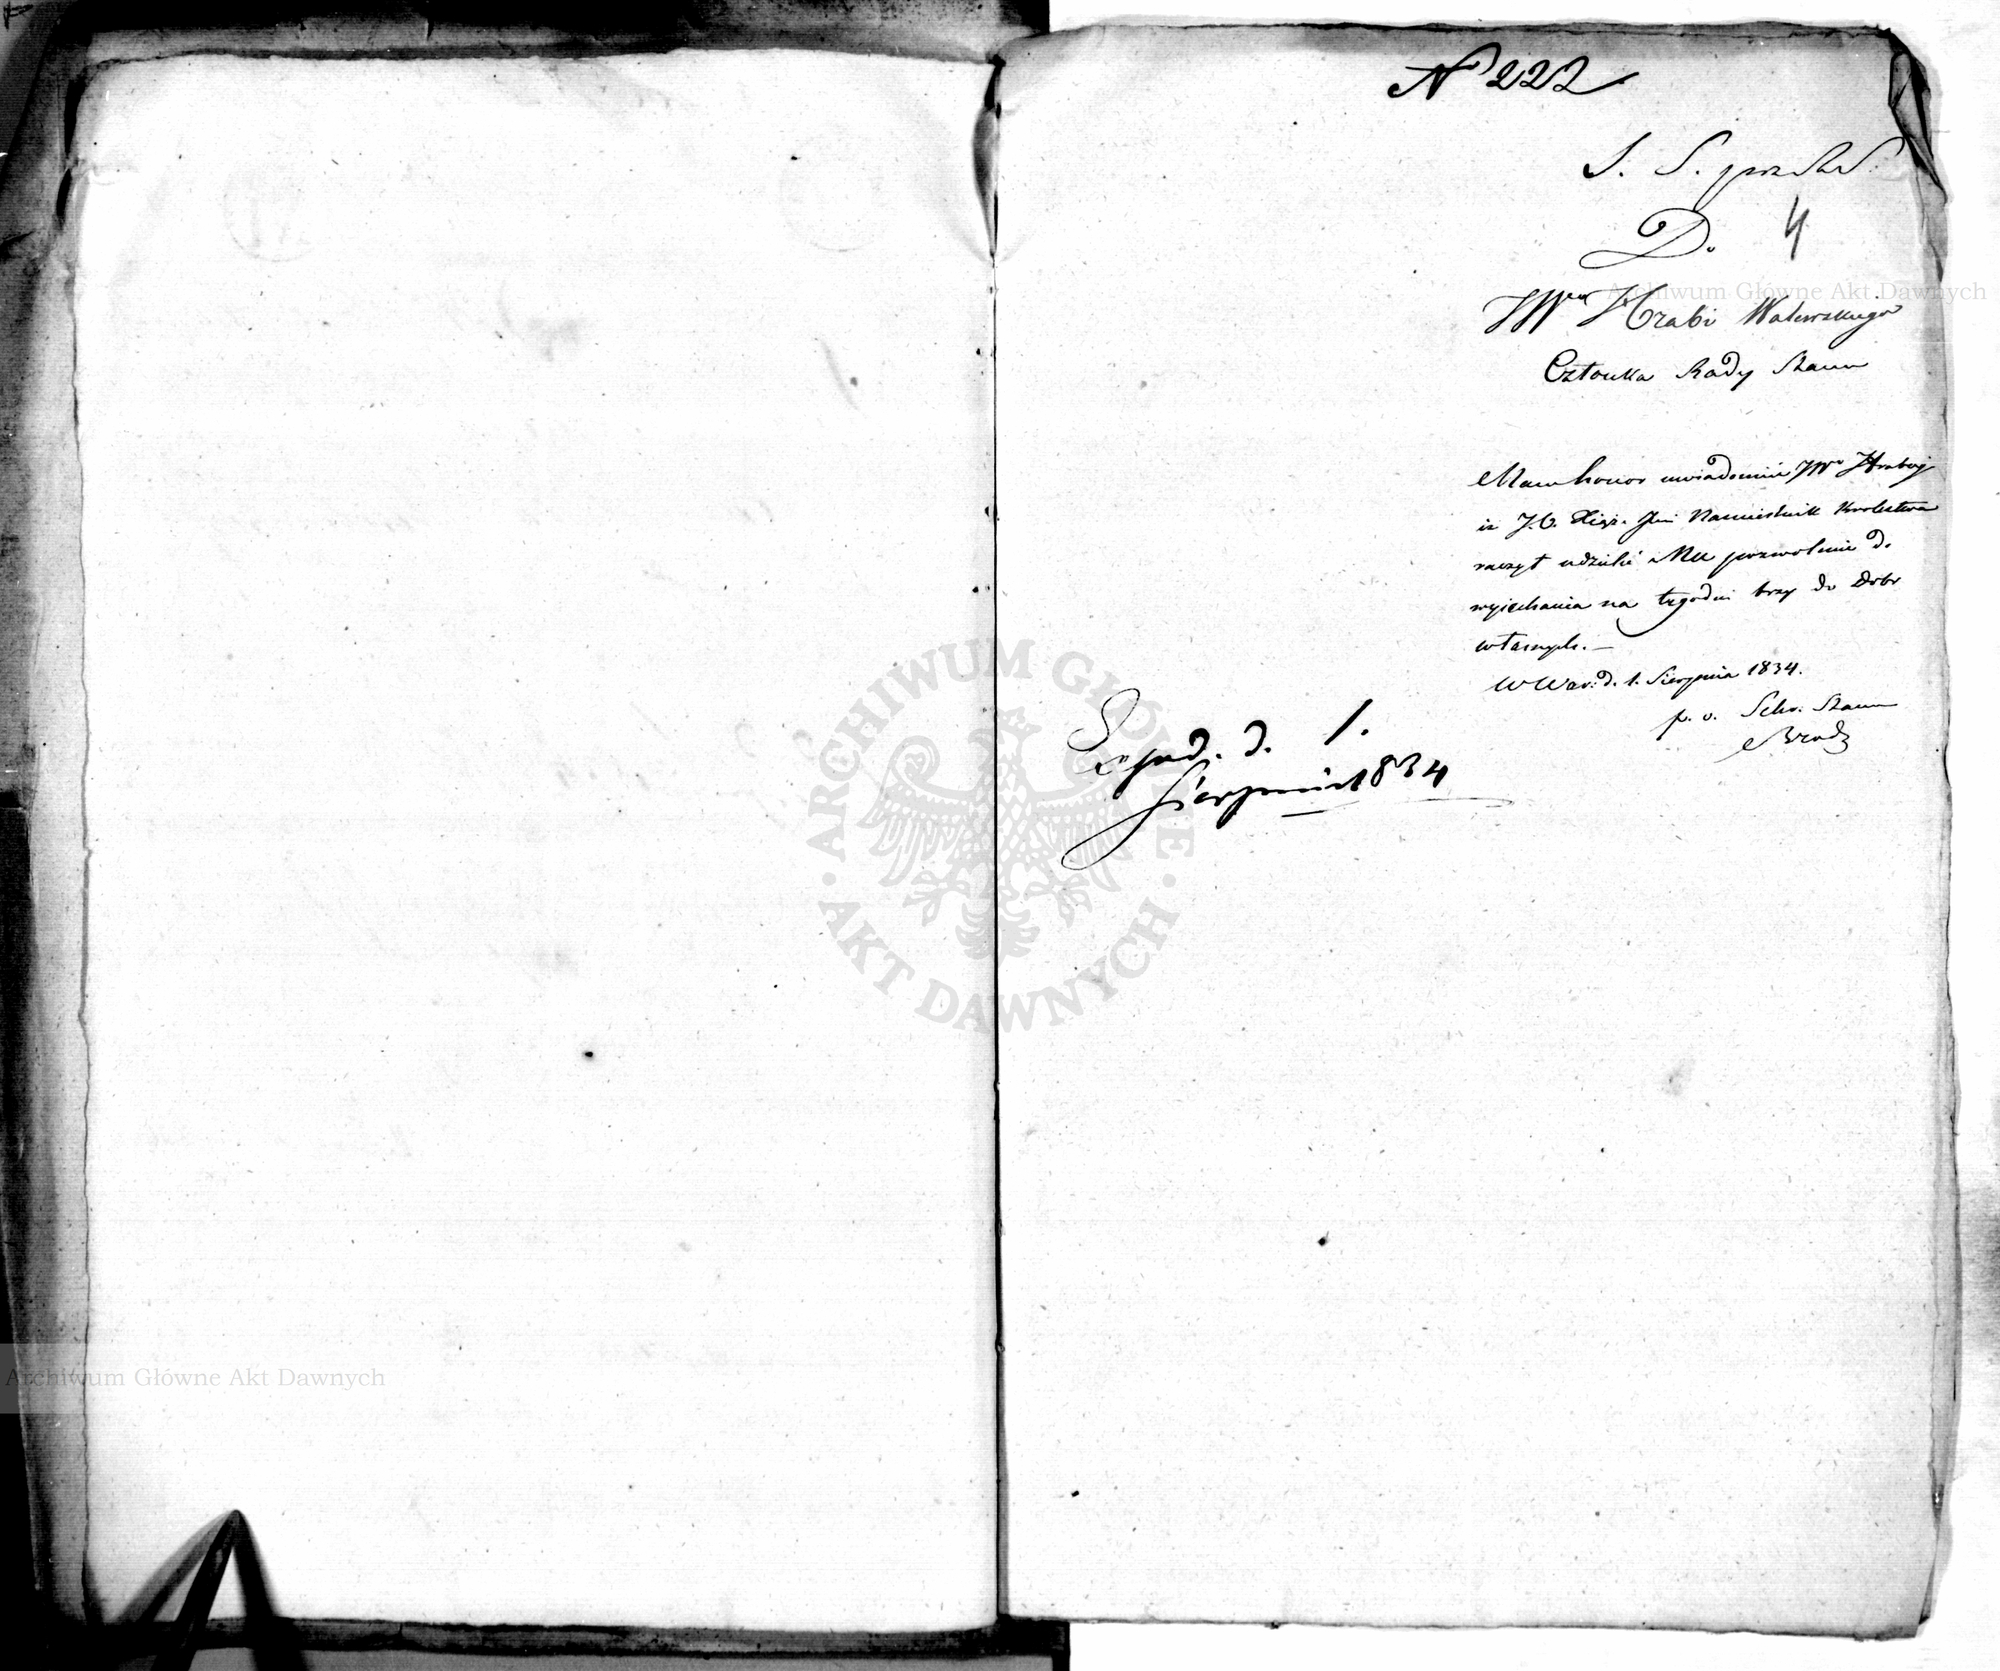 N 222
S. S. przy R. S.
D. 4
JWgo Hrabi Walewskiego
Członka Rady Stanu
Mam honor uwiadomić JWo Hrabiego
iż J.O. Xiąże Jmć Namiestnik Królestwa
raczył udzielić Mu pozwolenie do
wyjechania na tygodni trzy do Dobr
własnych. —
W War: d. 1. Sierpnia 1834.
p. o. Sekr. Stanu
Exped. d. 1.
Sierpnia 1834
ARCHIWUM GŁÓWNE AKT DAWNYCH
Archiwum Główne Akt Dawnych
Archiwum Główne Akt Dawnych